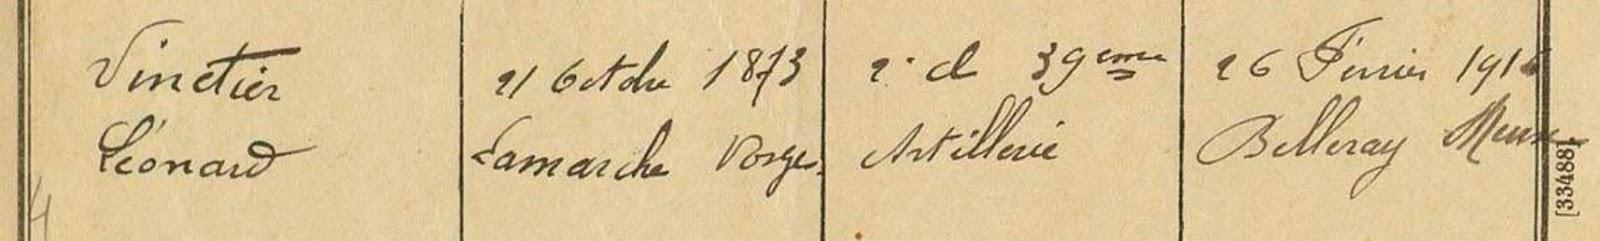 Vinctier 21 Octobre 1873 2e cl 39eme 26 Février 1916
Léonard Lamarche Vosges Artillerie Belleray Meuse
[33488]